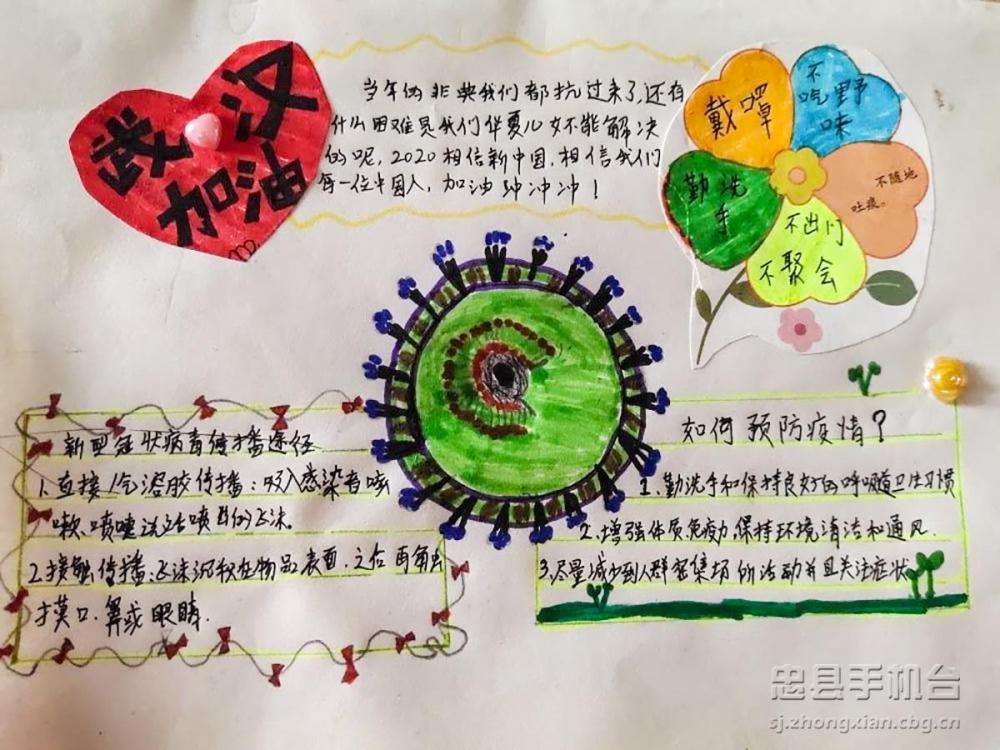 武汉
加油
当年的非典我们都抗过来了,还有
什么困难是我们华夏儿女不能解决
的呢,2020相信新中国,相信我们
每一位中国人,加油冲冲冲!
戴罩
不
吃野
味
勤洗
手
不随地
吐痰。
不出门
不聚会
新型冠状病毒传播途径
1.直接/气溶胶传播:吸入感染者咳
嗽、喷嚏说话喷出的飞沫.
2.接触传播:飞沫沉积在物品表面,之后再触虫
摸口.鼻或眼睛.
如何预防疫情?
1、勤洗手和保持良好的呼吸道卫生习惯
2、增强体质免疫力,保持环境清洁和通风.
3、尽量减少到人群密集场所活动并且关注症状
忠县手机台
sj.zhongxian.cbg.cn